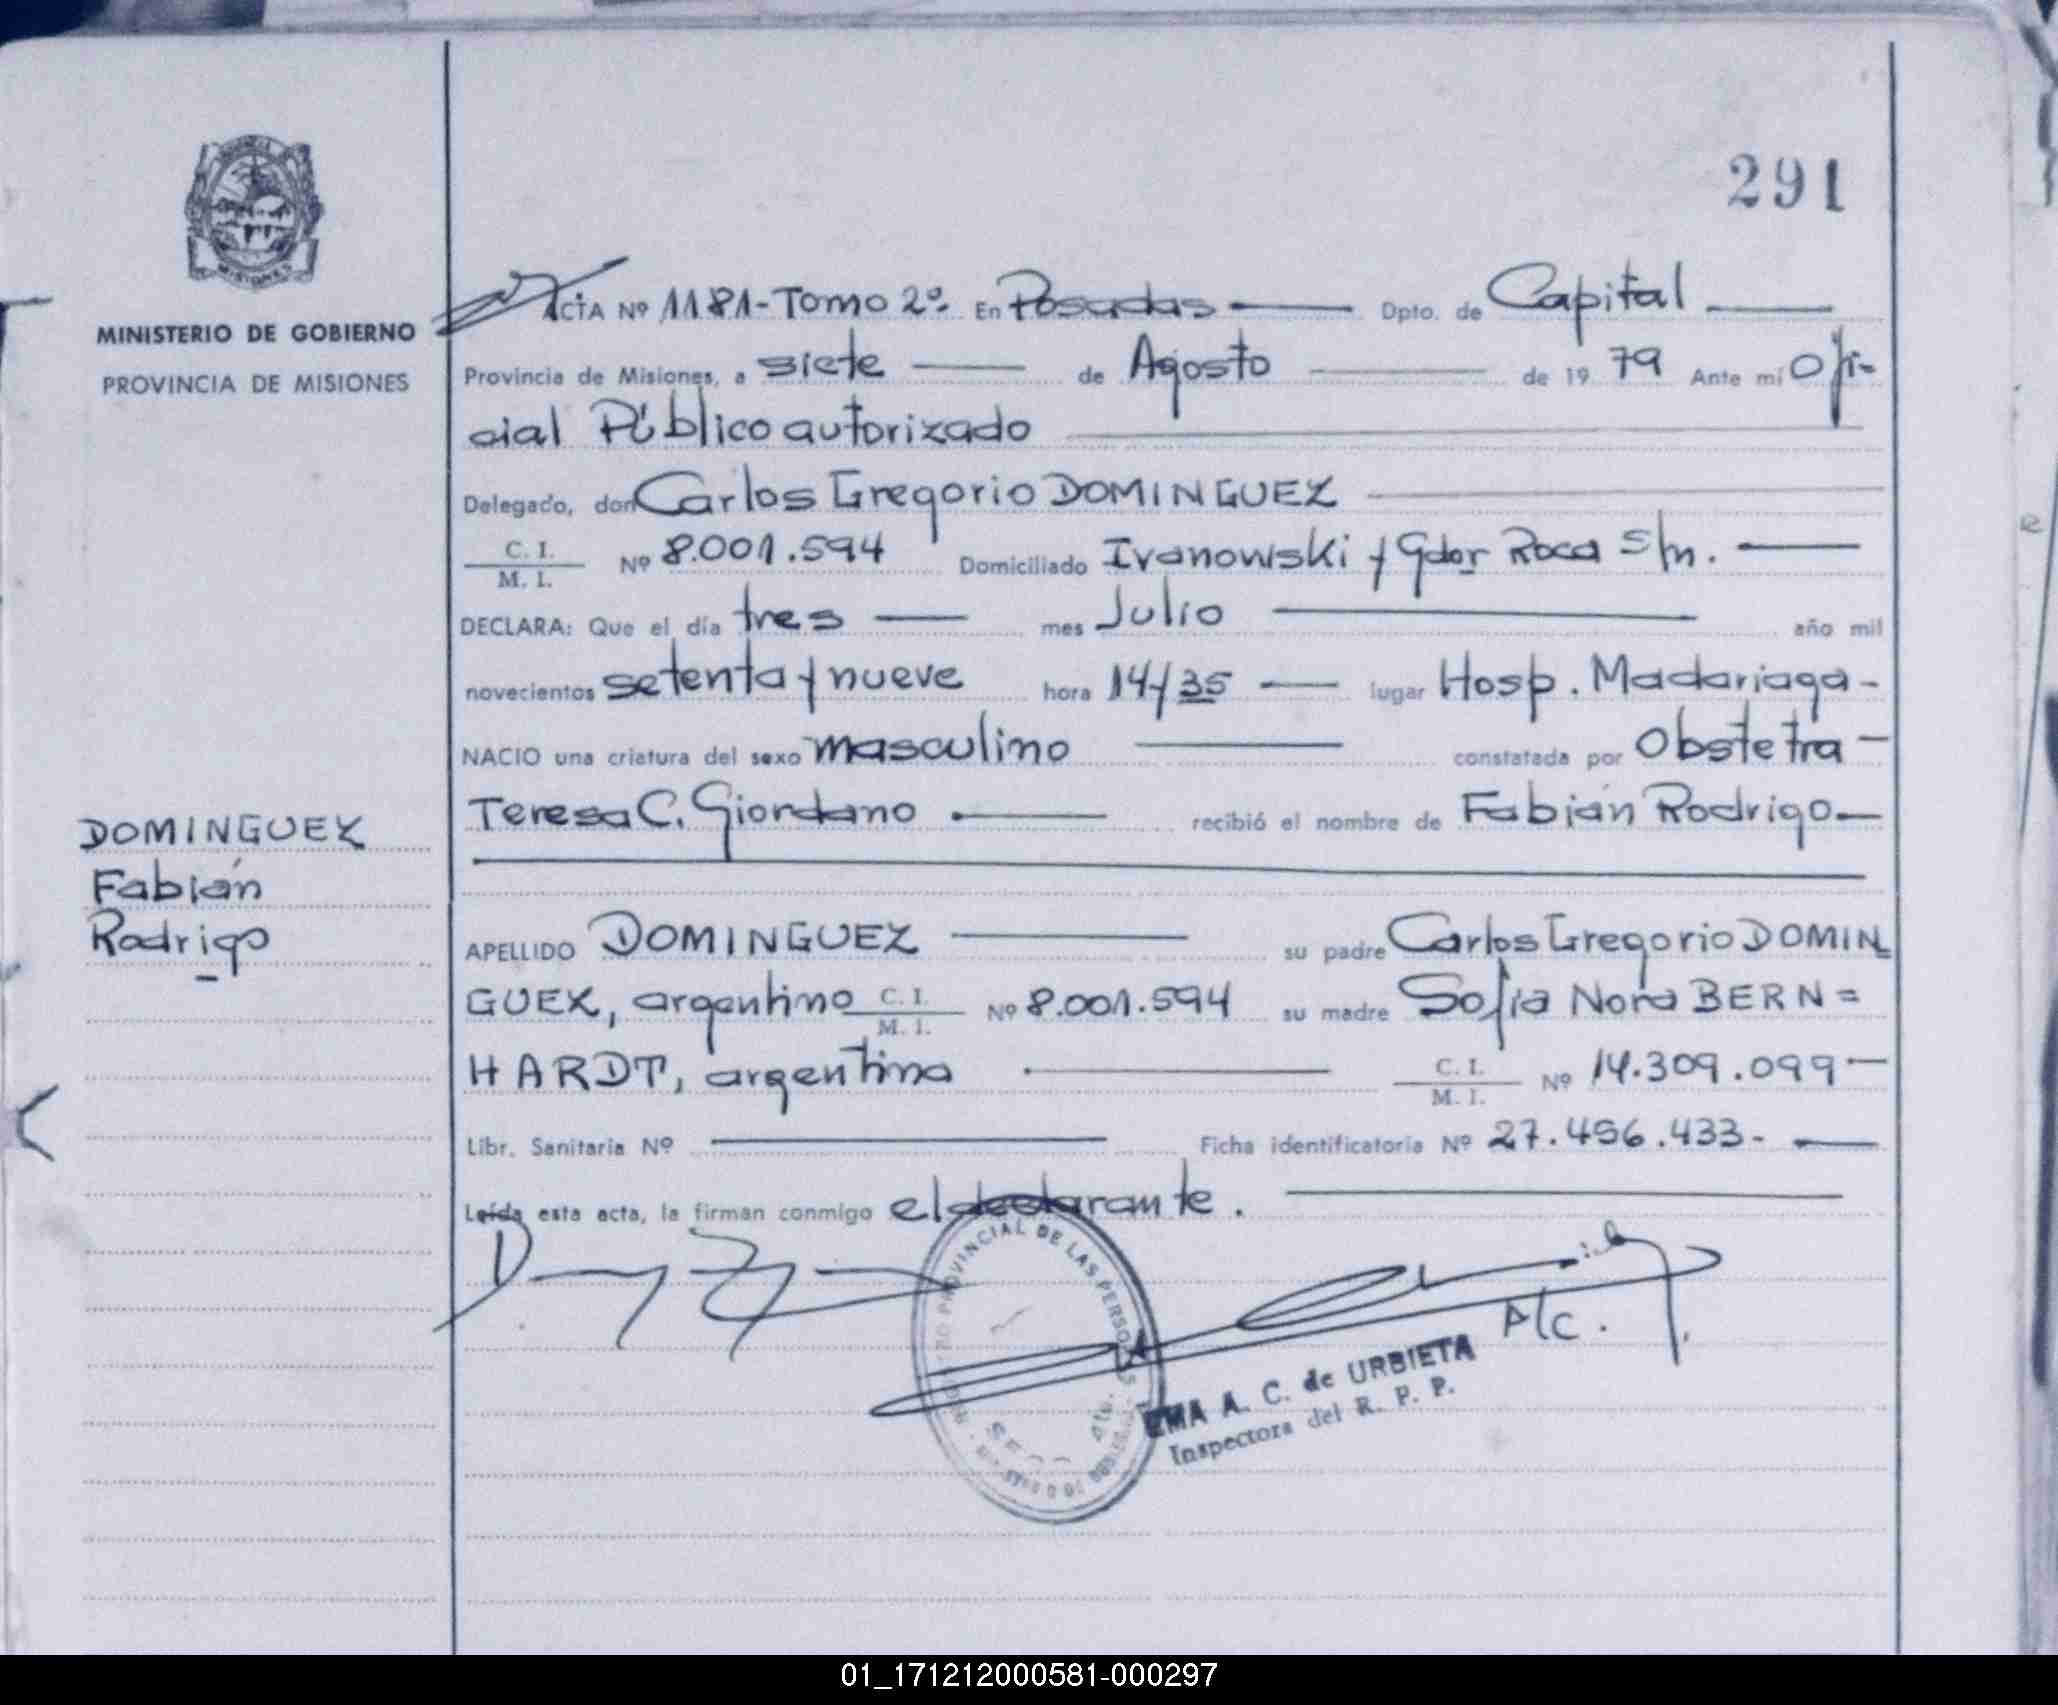 291
MISIONES
MINISTERIO DE GOBIERNO
PROVINCIA DE MISIONES
ACTA Nº 1181-Tomo 2º. En Posadas Dpto. de Capital
Provincia de Misiones, a siete de Agosto de 19 79 Ante mí Ofi-
cial Público autorizado
Delegado, don Carlos Gregorio DOMINGUEZ
C. I. / M. I. Nº 8.001.594 Domiciliado Ivanowski y Gdor Roca s/n.
DECLARA: Que el día tres mes Julio año mil
novecientos setenta y nueve hora 14/35 lugar Hosp. Madariaga-
NACIO una criatura del sexo masculino constatada por Obstetra-
Teresa C. Giordano recibió el nombre de Fabián Rodrigo
DOMINGUEZ
Fabián
Rodrigo
APELLIDO DOMINGUEZ su padre Carlos Gregorio DOMIN
GUEZ, argentino C. I. / M. I. Nº 8.001.594 su madre Sofia Nora BERN=
HARDT, argentina C. I. / M. I. Nº 14.309.099-
Libr. Sanitaria Nº Ficha identificatoria Nº 27.456.433-
Leída esta acta, la firman conmigo el declarante.
PROVINCIAL DE LAS PERSONAS
A/c.
EMA A. C. de URBIETA
Inspectora del R. P. P.
01_171212000581-000297